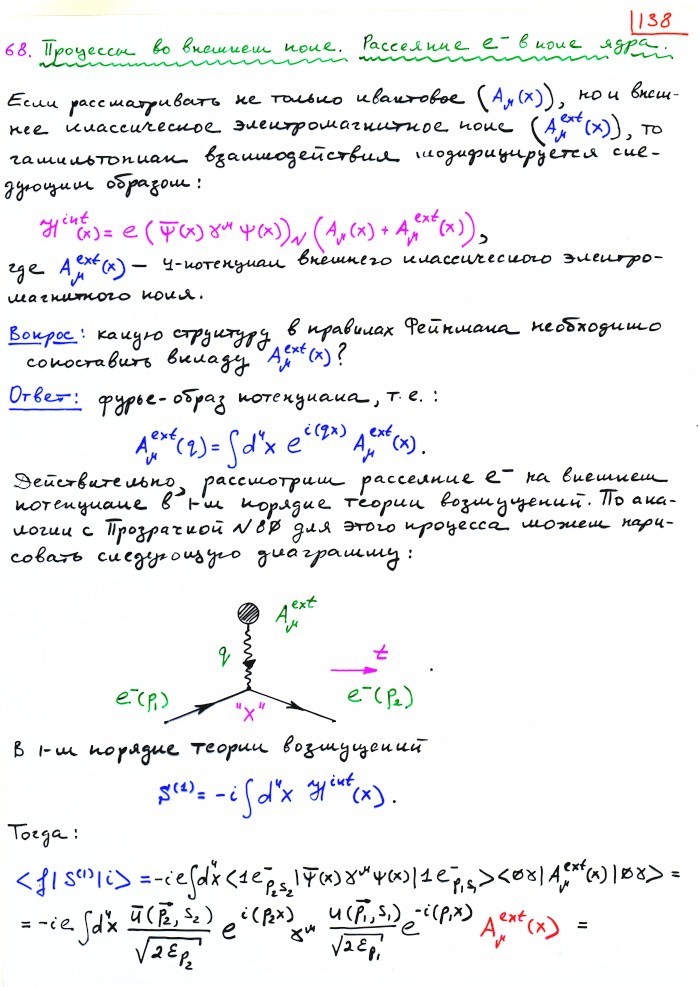 138
68. Процессы во внешнем поле. Рассеяние e⁻ в поле ядра.
Если рассматривать не только квантовое (A_μ(x)), но и внеш-
нее классическое электромагнитное поле (A_μ^{ext}(x)), то
гамильтониан взаимодействия модифицируется сле-
дующим образом:
ℋ^{int}(x) = e (ψ̄(x) γ^μ ψ(x))_N (A_μ(x) + A_μ^{ext}(x)),
где A_μ^{ext}(x) – 4-потенциал внешнего классического электро-
магнитного поля.
Вопрос: какую структуру в правилах Фейнмана необходимо
сопоставить вкладу A_μ^{ext}(x)?
Ответ: фурье-образ потенциала, т.е.:
A_μ^{ext}(q) = ∫d⁴x e^{i(qx)} A_μ^{ext}(x).
Действительно, рассмотрим рассеяние e⁻ на внешнем
потенциале в 1-м порядке теории возмущений. По ана-
логии с Прозрачкой N80 для этого процесса можем нари-
совать следующую диаграмму:
A_μ^{ext}
q
t
e⁻(p₁)
"x"
e⁻(p₂)
В 1-м порядке теории возмущений
S^{(1)} = -i ∫d⁴x ℋ^{int}(x).
Тогда:
<f|S^{(1)}|i> = -ie∫d⁴x <1e⁻_{p₂s₂}|ψ̄(x) γ^μ ψ(x)|1e⁻_{p₁s₁}><0γ|A_μ^{ext}(x)|0γ> =
= -ie ∫d⁴x ū(p⃗₂, s₂)/√(2ε_{p₂}) e^{i(p₂x)} γ^μ u(p⃗₁, s₁)/√(2ε_{p₁}) e^{-i(p₁x)} A_μ^{ext}(x) =